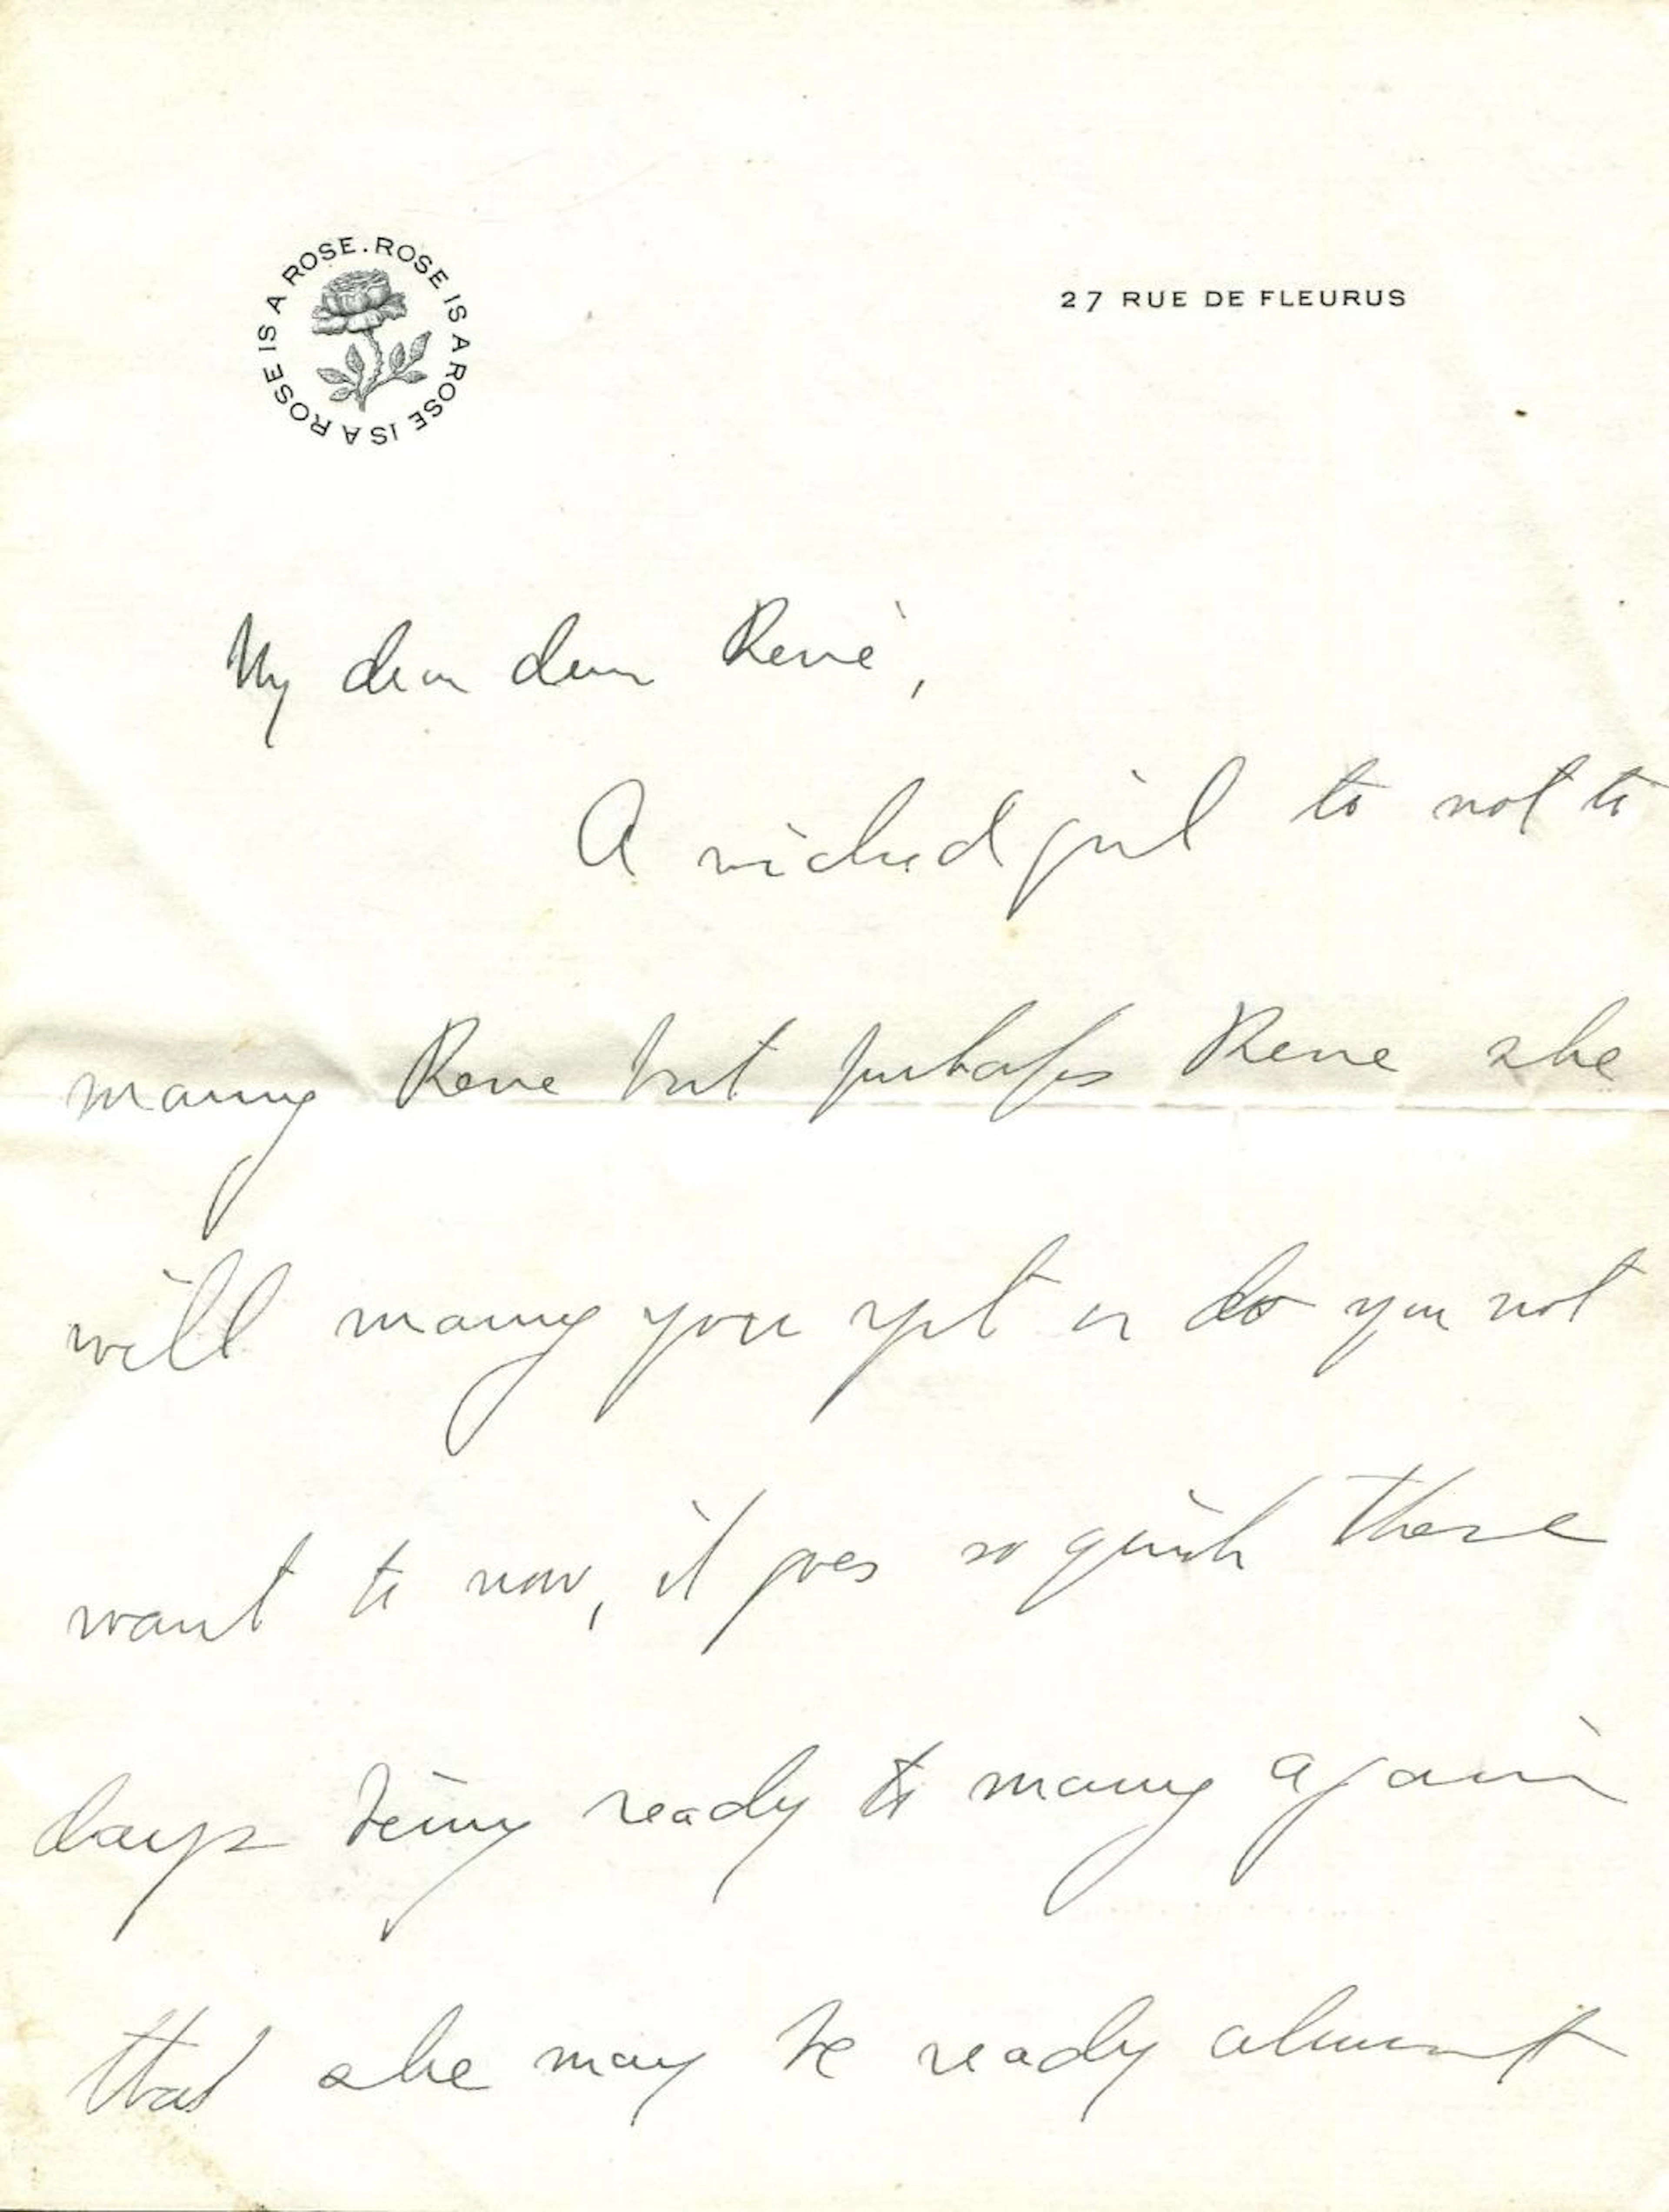 ROSE IS A ROSE IS A ROSE IS A ROSE.
27 RUE DE FLEURUS
My dear dear René,
A wicked girl to not to
marry Rene but perhaps Rene she
will marry you yet or do you not
want to now, it goes so quick these
days being ready to marry again
that she may be ready almost